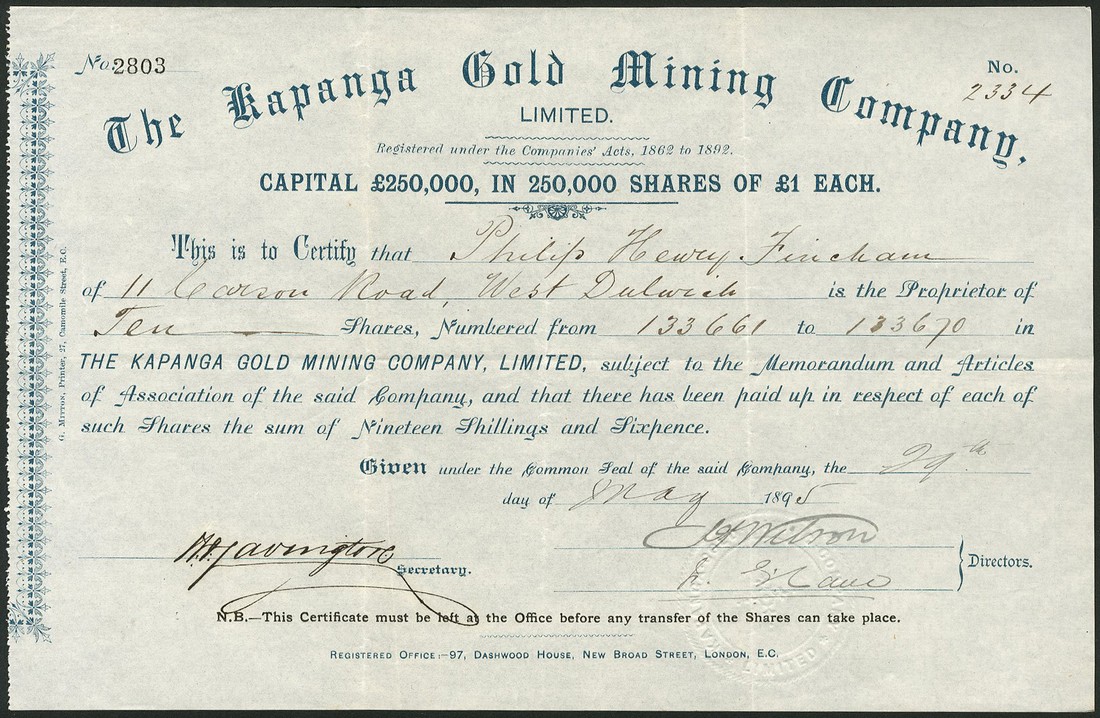 No. 2803
No. 2334
The Kapanga Gold Mining Company,
LIMITED.
Registered under the Companies' Acts, 1862 to 1892.
CAPITAL £250,000, IN 250,000 SHARES OF £1 EACH.
This is to Certify that Philip Henry Fincham
of 11 Carson Road, West Dulwich is the Proprietor of
Ten Shares, Numbered from 133661 to 133670 in
THE KAPANGA GOLD MINING COMPANY, LIMITED, subject to the Memorandum and Articles
of Association of the said Company, and that there has been paid up in respect of each of
such Shares the sum of Nineteen Shillings and Sixpence.
Given under the Common Seal of the said Company, the 29th
day of May 1895
Wilson
Secretary.
Directors.
N.B.—This Certificate must be left at the Office before any transfer of the Shares can take place.
REGISTERED OFFICE:—97, DASHWOOD HOUSE, NEW BROAD STREET, LONDON, E.C.
G. MITTON, Printer, 27, Camomile Street, E.C.
LIMITED